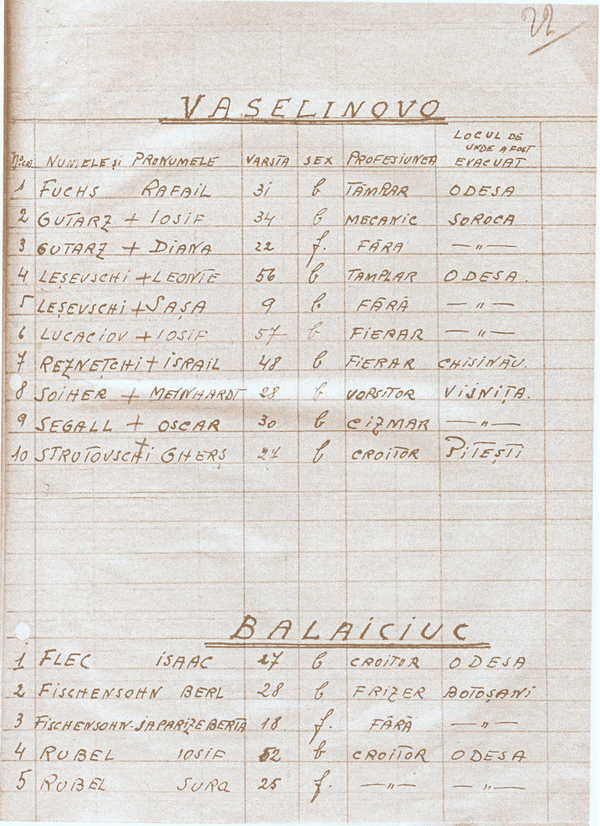 22
VASELINOVO
Nr.crt. NUMELE și PRONUMELE VARSTA SEX PROFESIUNEA LOCUL DE UNDE A FOST EVACUAT
1 FUCHS RAFAIL 31 b TÂMPLAR ODESA
2 GUTARZ + IOSIF 34 b MECANIC SOROCA
3 GUTARZ + DIANA 22 f. FĂRĂ —"—
4 LEȘEVSCHI + LEONTE 56 b TAMPLAR ODESA.
5 LEȘEVSCHI + SAȘA 9 b FĂRĂ —"—
6 LUCACIOV + IOSIF 57 b FIERAR —"—
7 REZNEȚCHI + ISRAIL 48 b FIERAR CHIȘINĂU.
8 SOIHER + MEYNHARDT 28 b VOPSITOR VIȘNIȚA.
9 SEGALL + OSCAR 30 b CIZMAR —"—
10 STRUTOVSCHI + GHERȘ 27 b CROITOR PITEȘTI
BALAICIUC
1 FLEC ISAAC 27 b CROITOR ODESA
2 FISCHENSOHN BERL 28 b FRIZER BOTOȘANI
3 FISCHENSOHN-JAPARIZE BERTA 18. f. FĂRĂ —"—
4 RUBEL IOSIF 52 b CROITOR ODESA
5 RUBEL SURA 25 f. —"— —"—